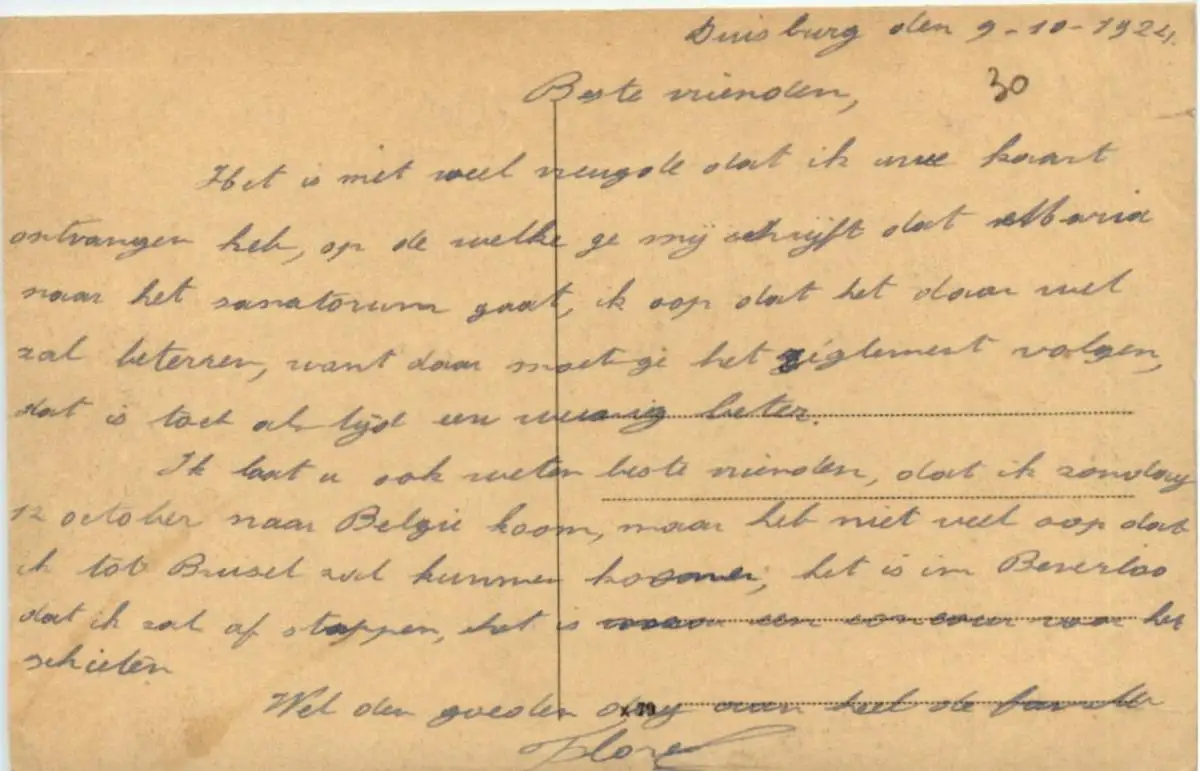 Duisburg den 9-10-1924.
Beste vrienden,
30
Het is met veel vreugde dat ik uwe kaart
ontvangen heb, op de welke ge mij schrijft dat Maria
naar het sanatorum gaat, ik oop dat het daar wel
zal beterren, want daar moet ge het réglement volgen,
dat is toch altijd een wenig beter.
Ik laat u ook weten beste vrienden, dat ik zondag
12 october naar Belgie koom, maar heb niet veel oop dat
ik tot Brusel zal kunnen koomen, het is in Beverloo
dat ik zal af stappen, het is voor een concour voor het
schieten
Wel den goeden dag aan heel de familie
x 79